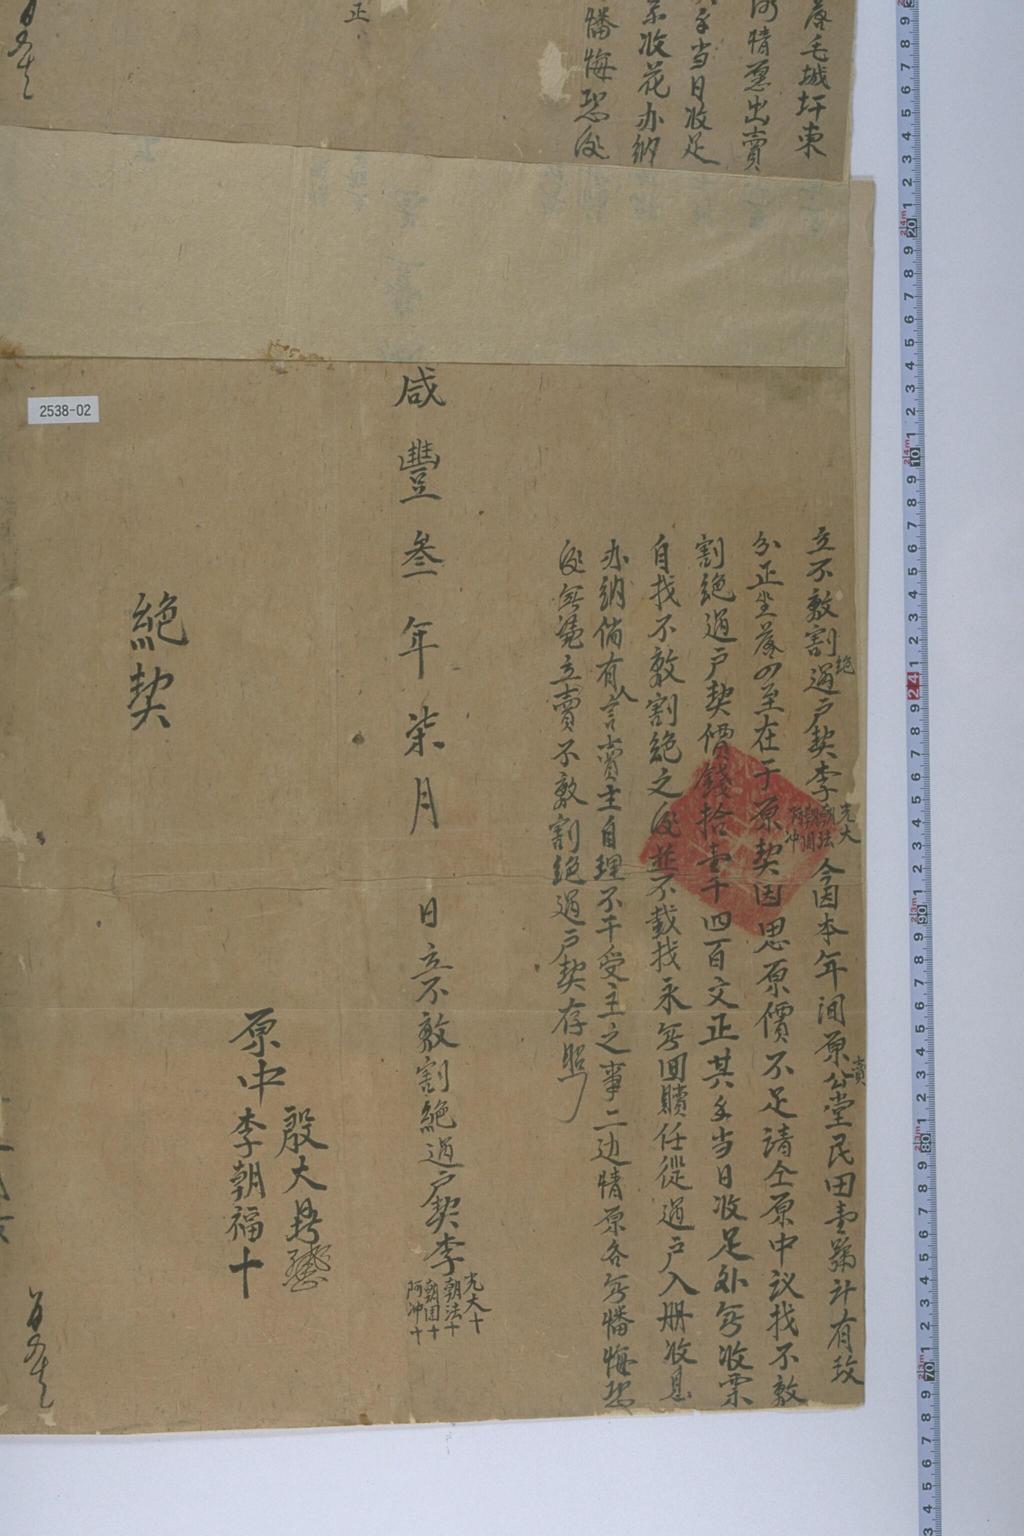 落毛城圩東
情愿出賣
手当日收足
收花办納
悔恐後
正
立不敷割絕過户契李光大朝法朝国阿冲今因本年间原賣公堂民田壹號計有玫
分正坐落四至在于原契因思原價不足請仝原中议找不敷
割絕過户契價錢拾壹千四百文正其手当日收足外無收票
自找不敷割絕之後並不載找永無回贖任從過户入册收息
办納倘有人言賣主自理不干受主之事二边情原各無悔恐
後無凴立賣不敷割絕過户契存照
咸豐叁年柒月 日立不敷割絕過户契李光大十朝法十朝国十阿冲十
殷大
原中李朝福十
絕契
2538-02